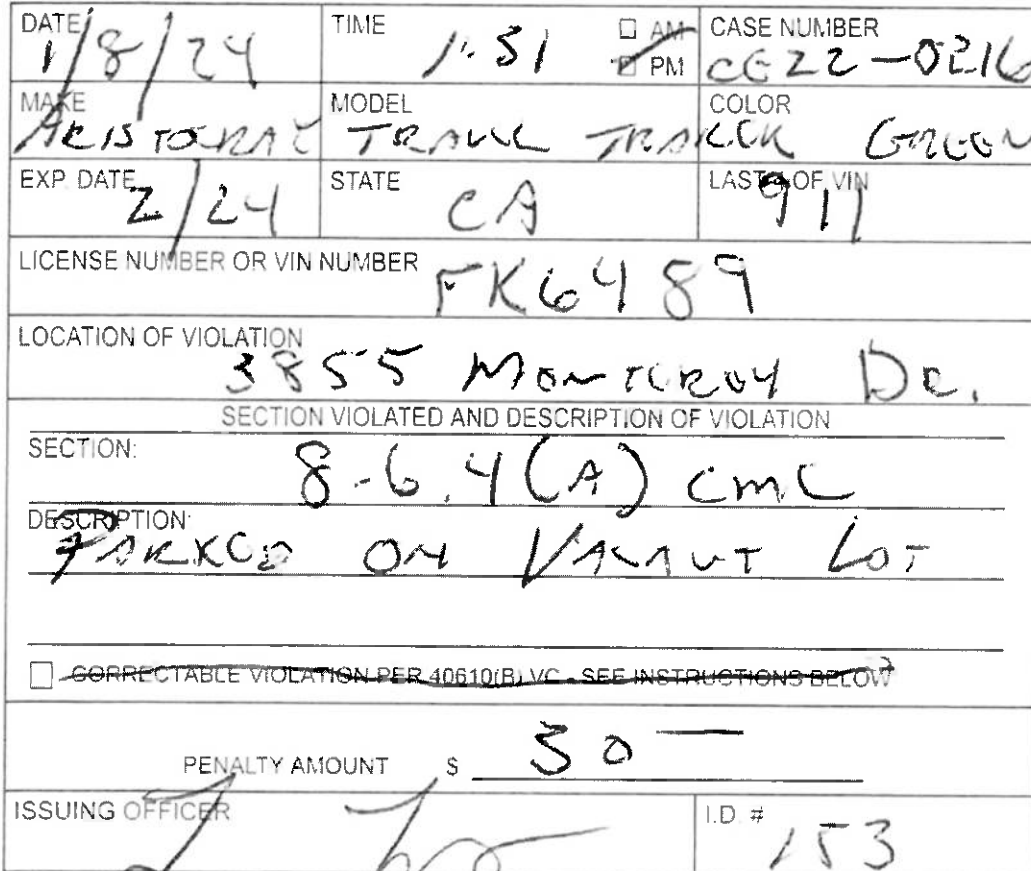 DATE TIME ☐ AM CASE NUMBER
1/8/24 1:51 ☑ PM CE22-0216
MAKE MODEL COLOR
ARISTOCRAT TRAVEL TRAILER GREEN
EXP. DATE STATE LAST 4 OF VIN
2/24 CA 911
LICENSE NUMBER OR VIN NUMBER
FK6489
LOCATION OF VIOLATION
3855 MONTEREY DR.
SECTION VIOLATED AND DESCRIPTION OF VIOLATION
SECTION:
8-6.4(A) CMC
DESCRIPTION:
PARKED ON VACANT LOT
☐ CORRECTABLE VIOLATION PER 40610(B) VC - SEE INSTRUCTIONS BELOW
PENALTY AMOUNT $ 30—
ISSUING OFFICER I.D. #
153